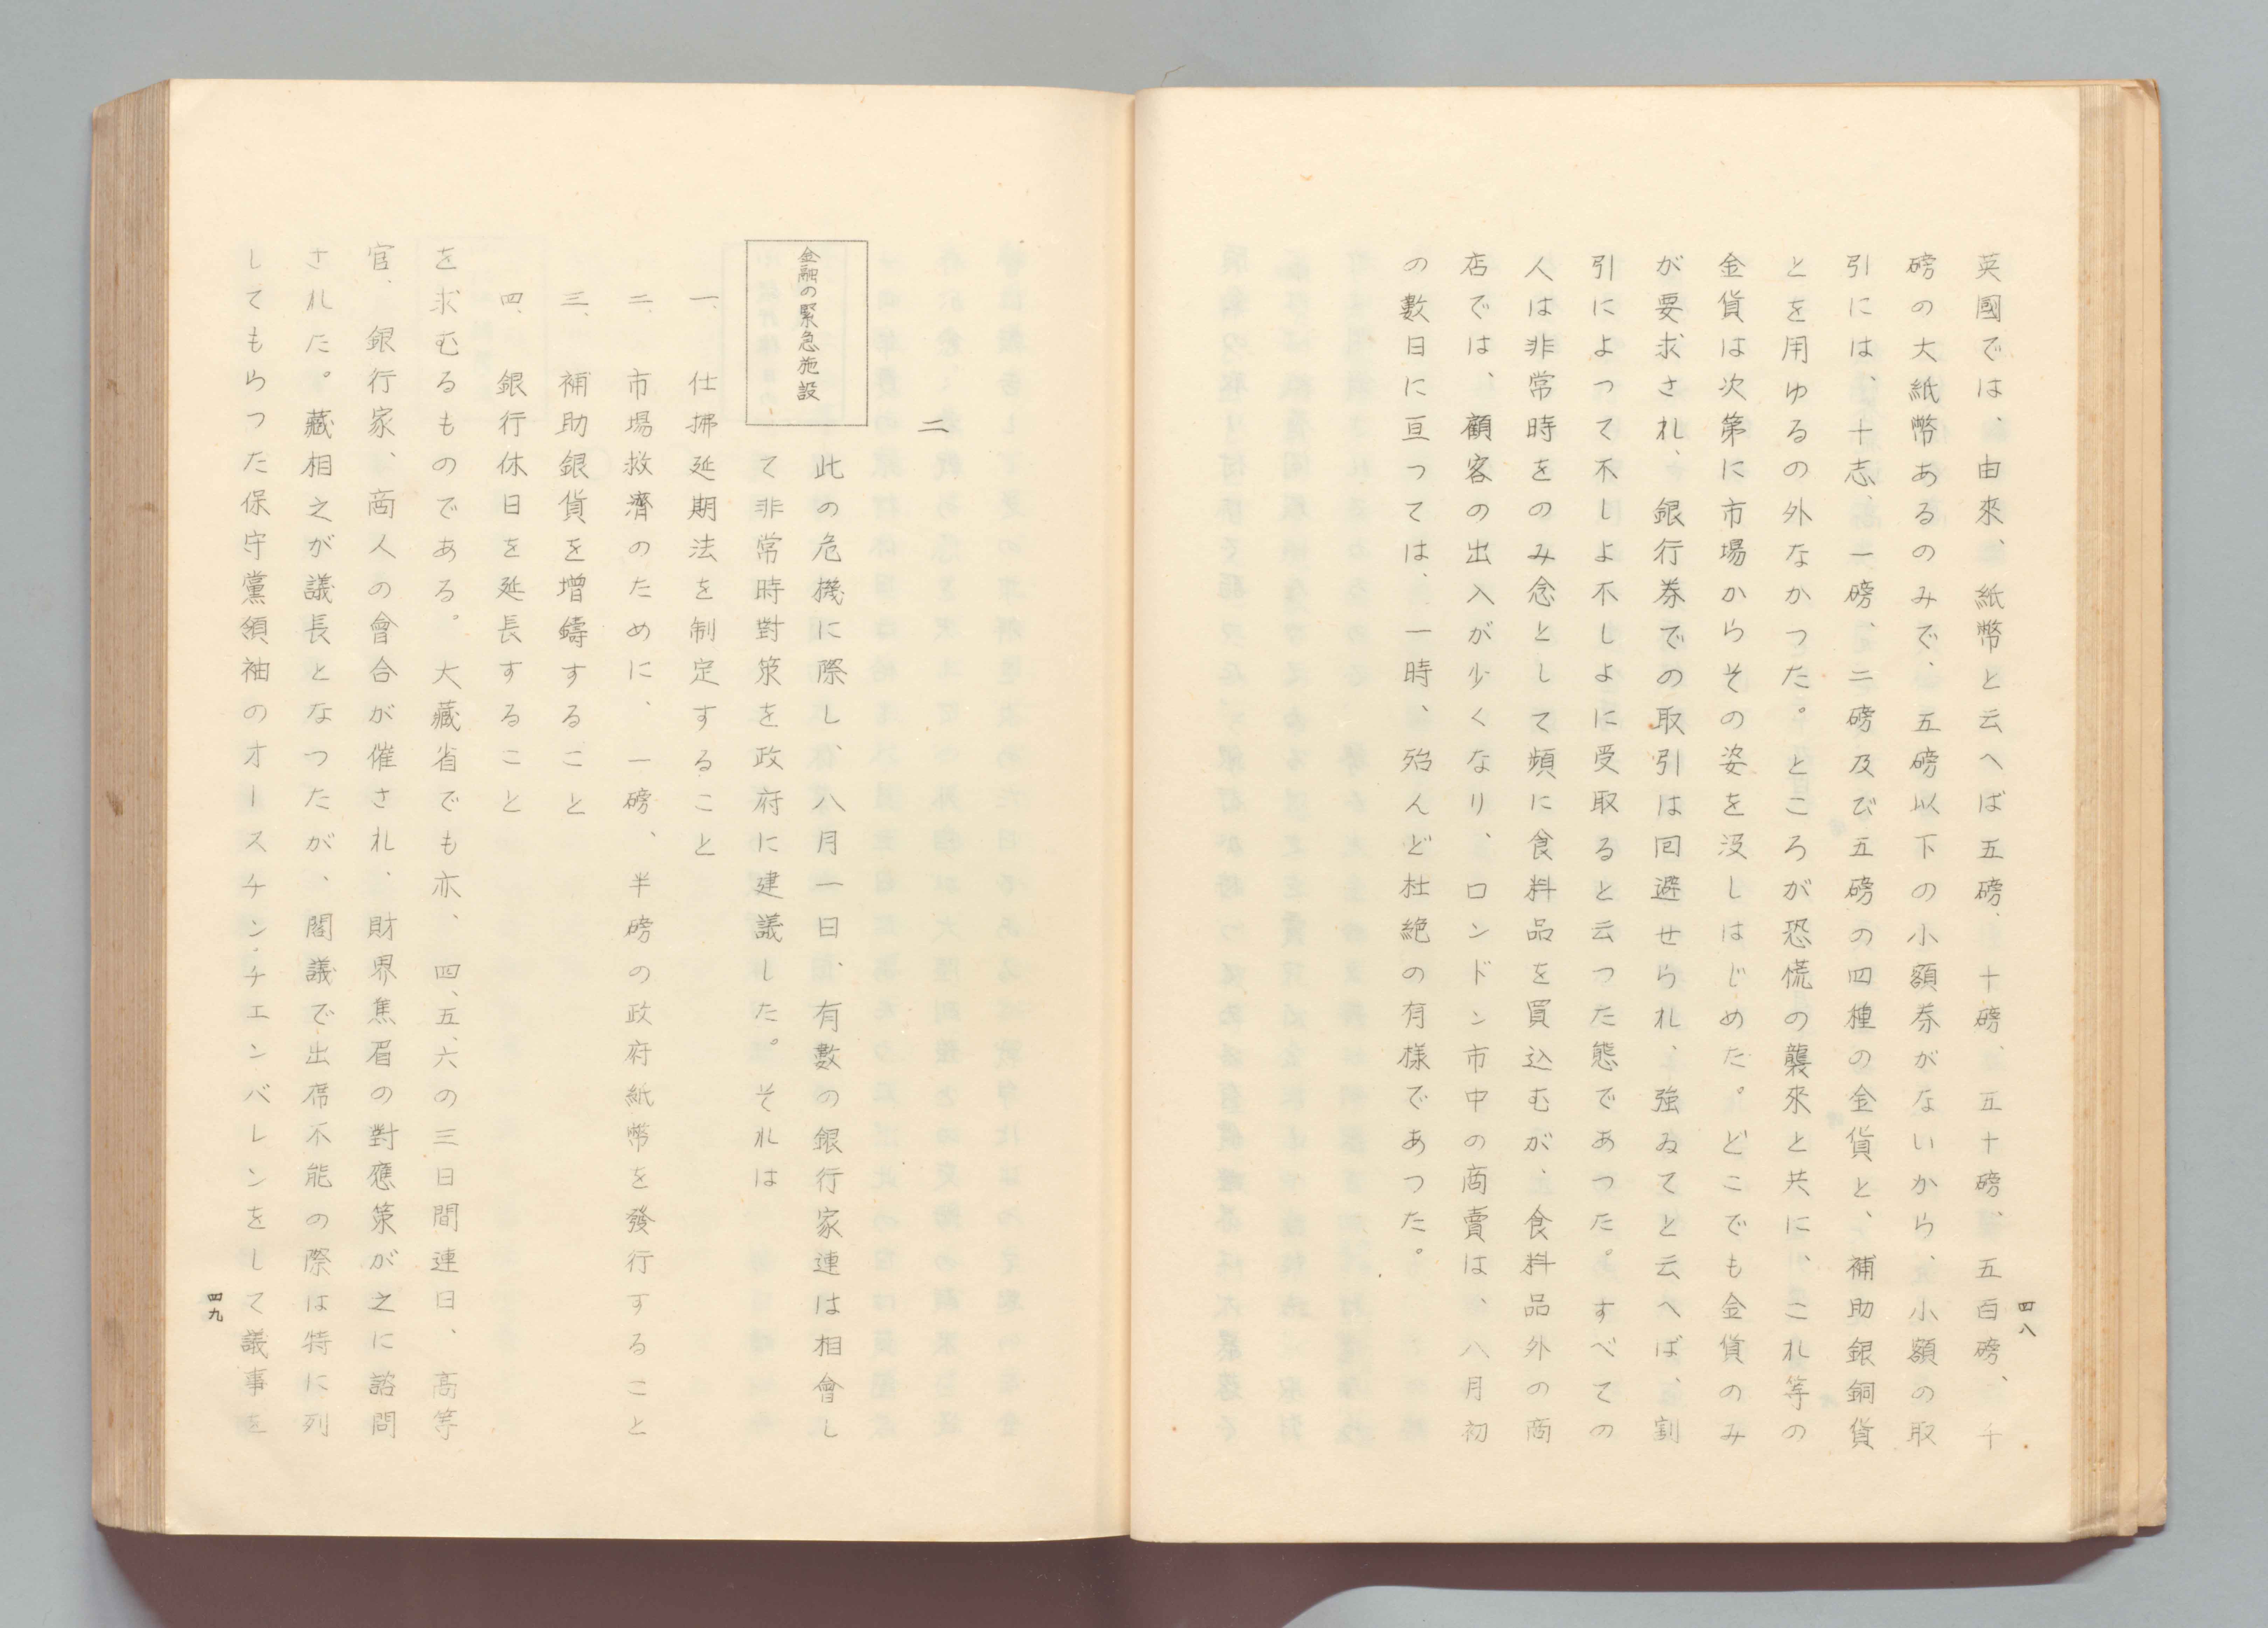 英國では、由來、紙幣と云へば五磅、十磅、五十磅、五百磅、千
磅の大紙幣あるのみで、五磅以下の小額券がないから、小額の取
引には、十志、一磅、二磅及び五磅の四種の金貨と、補助銀銅貨
とを用ゆるの外なかつた。ところが恐慌の襲來と共に、これ等の
金貨は次第に市場からその姿を沒しはじめた。どこでも金貨のみ
が要求され、銀行券での取引は回避せられ、強ゐてと云へば、割
引によつて不しよ不しよに受取ると云つた態であつた。すべての
人は非常時をのみ念として頻に食料品を買込むが、食料品外の商
店では、顧客の出入が少くなり、ロンドン市中の商賣は、八月初
の數日に亘つては、一時、殆んど杜絶の有様であつた。
四八
二
金融の緊急施設
此の危機に際し、八月一日、有數の銀行家連は相會し
て非常時對策を政府に建議した。それは
一、仕拂延期法を制定すること
二、市場救濟のために、一磅、半磅の政府紙幣を發行すること
三、補助銀貨を増鑄すること
四、銀行休日を延長すること
を求むるものである。大藏省でも亦、四、五、六の三日間連日、高等
官、銀行家、商人の會合が催され、財界焦眉の對應策が之に諮問
された。藏相之が議長となつたが、閣議で出席不能の際は特に列
してもらつた保守黨領袖のオースチン・チエンバレンをして議事を
四九